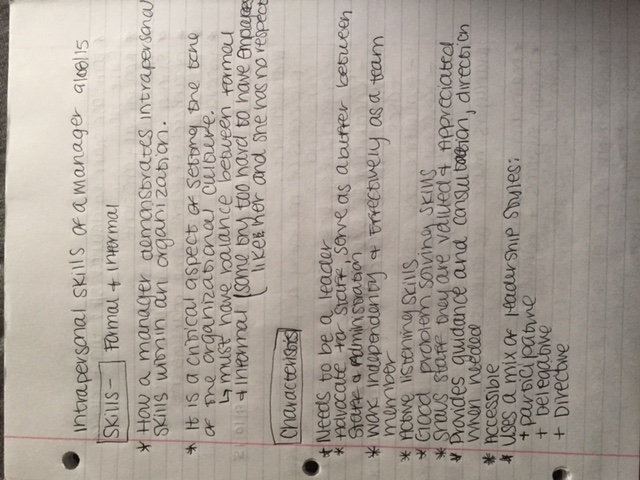 Intrapersonal skills of a manager
Skills- Formal + Informal
* How a manager demonstrates intrapersonal
skills within an organization.
* It is a critical aspect of setting the tone
of the organizational culture.
↳ must have balance between formal
+ informal (some try too hard to have
like her and she has no respect
Characteristics
* Needs to be a leader
* Advocate for staff, serve as a buffer between
staff + Administration
* Work independently + effectively as a team
member
* Active listening skills
* Good problem solving skills
* Shows staff they are valued + appreciated
* Provides guidance and consultation, direction
when needed
* Accessible
* Uses a mix of leadership styles:
+ participative
+ Delegative
+ Directive